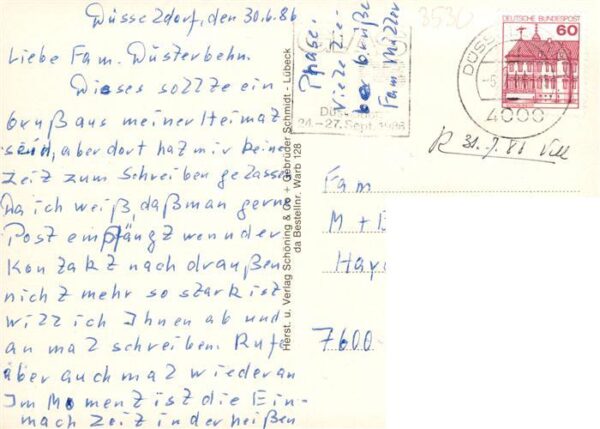 Düsseldorf, den 30.6.86
Liebe Fam. Düsterbehn.
Dieses sollte ein
Gruß aus meiner Heimat
sein, aber dort hat mir keine
Zeit zum Schreiben gelassen
Da ich weiß, daßman gerne
Post empfängt wenn der
Kontakt nach draußen
nicht mehr so stark ist
will ich Ihnen ab und
an mal schreiben. Rufe
aber auch mal wieder an
Im Moment ist die Ein-
mach Zeit in der heißen
Phase.
Viele Grüße
Fam Müller
Herst. u. Verlag Schöning & Co + Gebrüder Schmidt - Lübeck
da Bestellnr. Warb 128
3530
DEUTSCHE BUNDESPOST
60
4000
24.-27. Sept. 1986
Fam
M +
Hay
7600